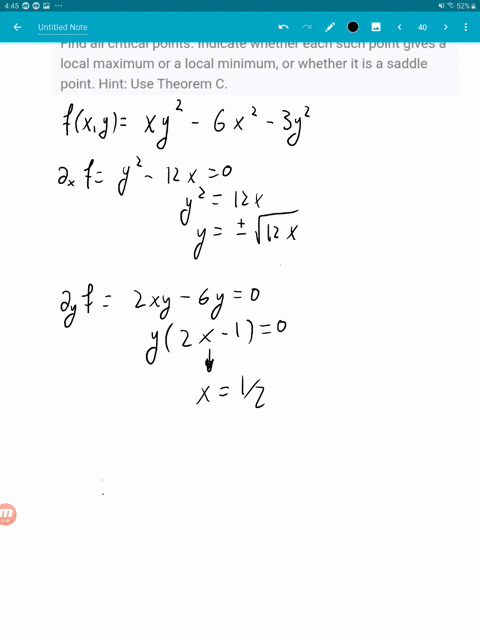 4:45 52%
Untitled Note 40
Find all critical points. Indicate whether each such point gives a
local maximum or a local minimum, or whether it is a saddle
point. Hint: Use Theorem C.
f(x,y) = xy² - 6x² - 3y²
∂ₓf = y² - 12x = 0
y² = 12x
y = ±√12x
∂yf = 2xy - 6y = 0
y(2x - 1) = 0
↓
x = 1/2